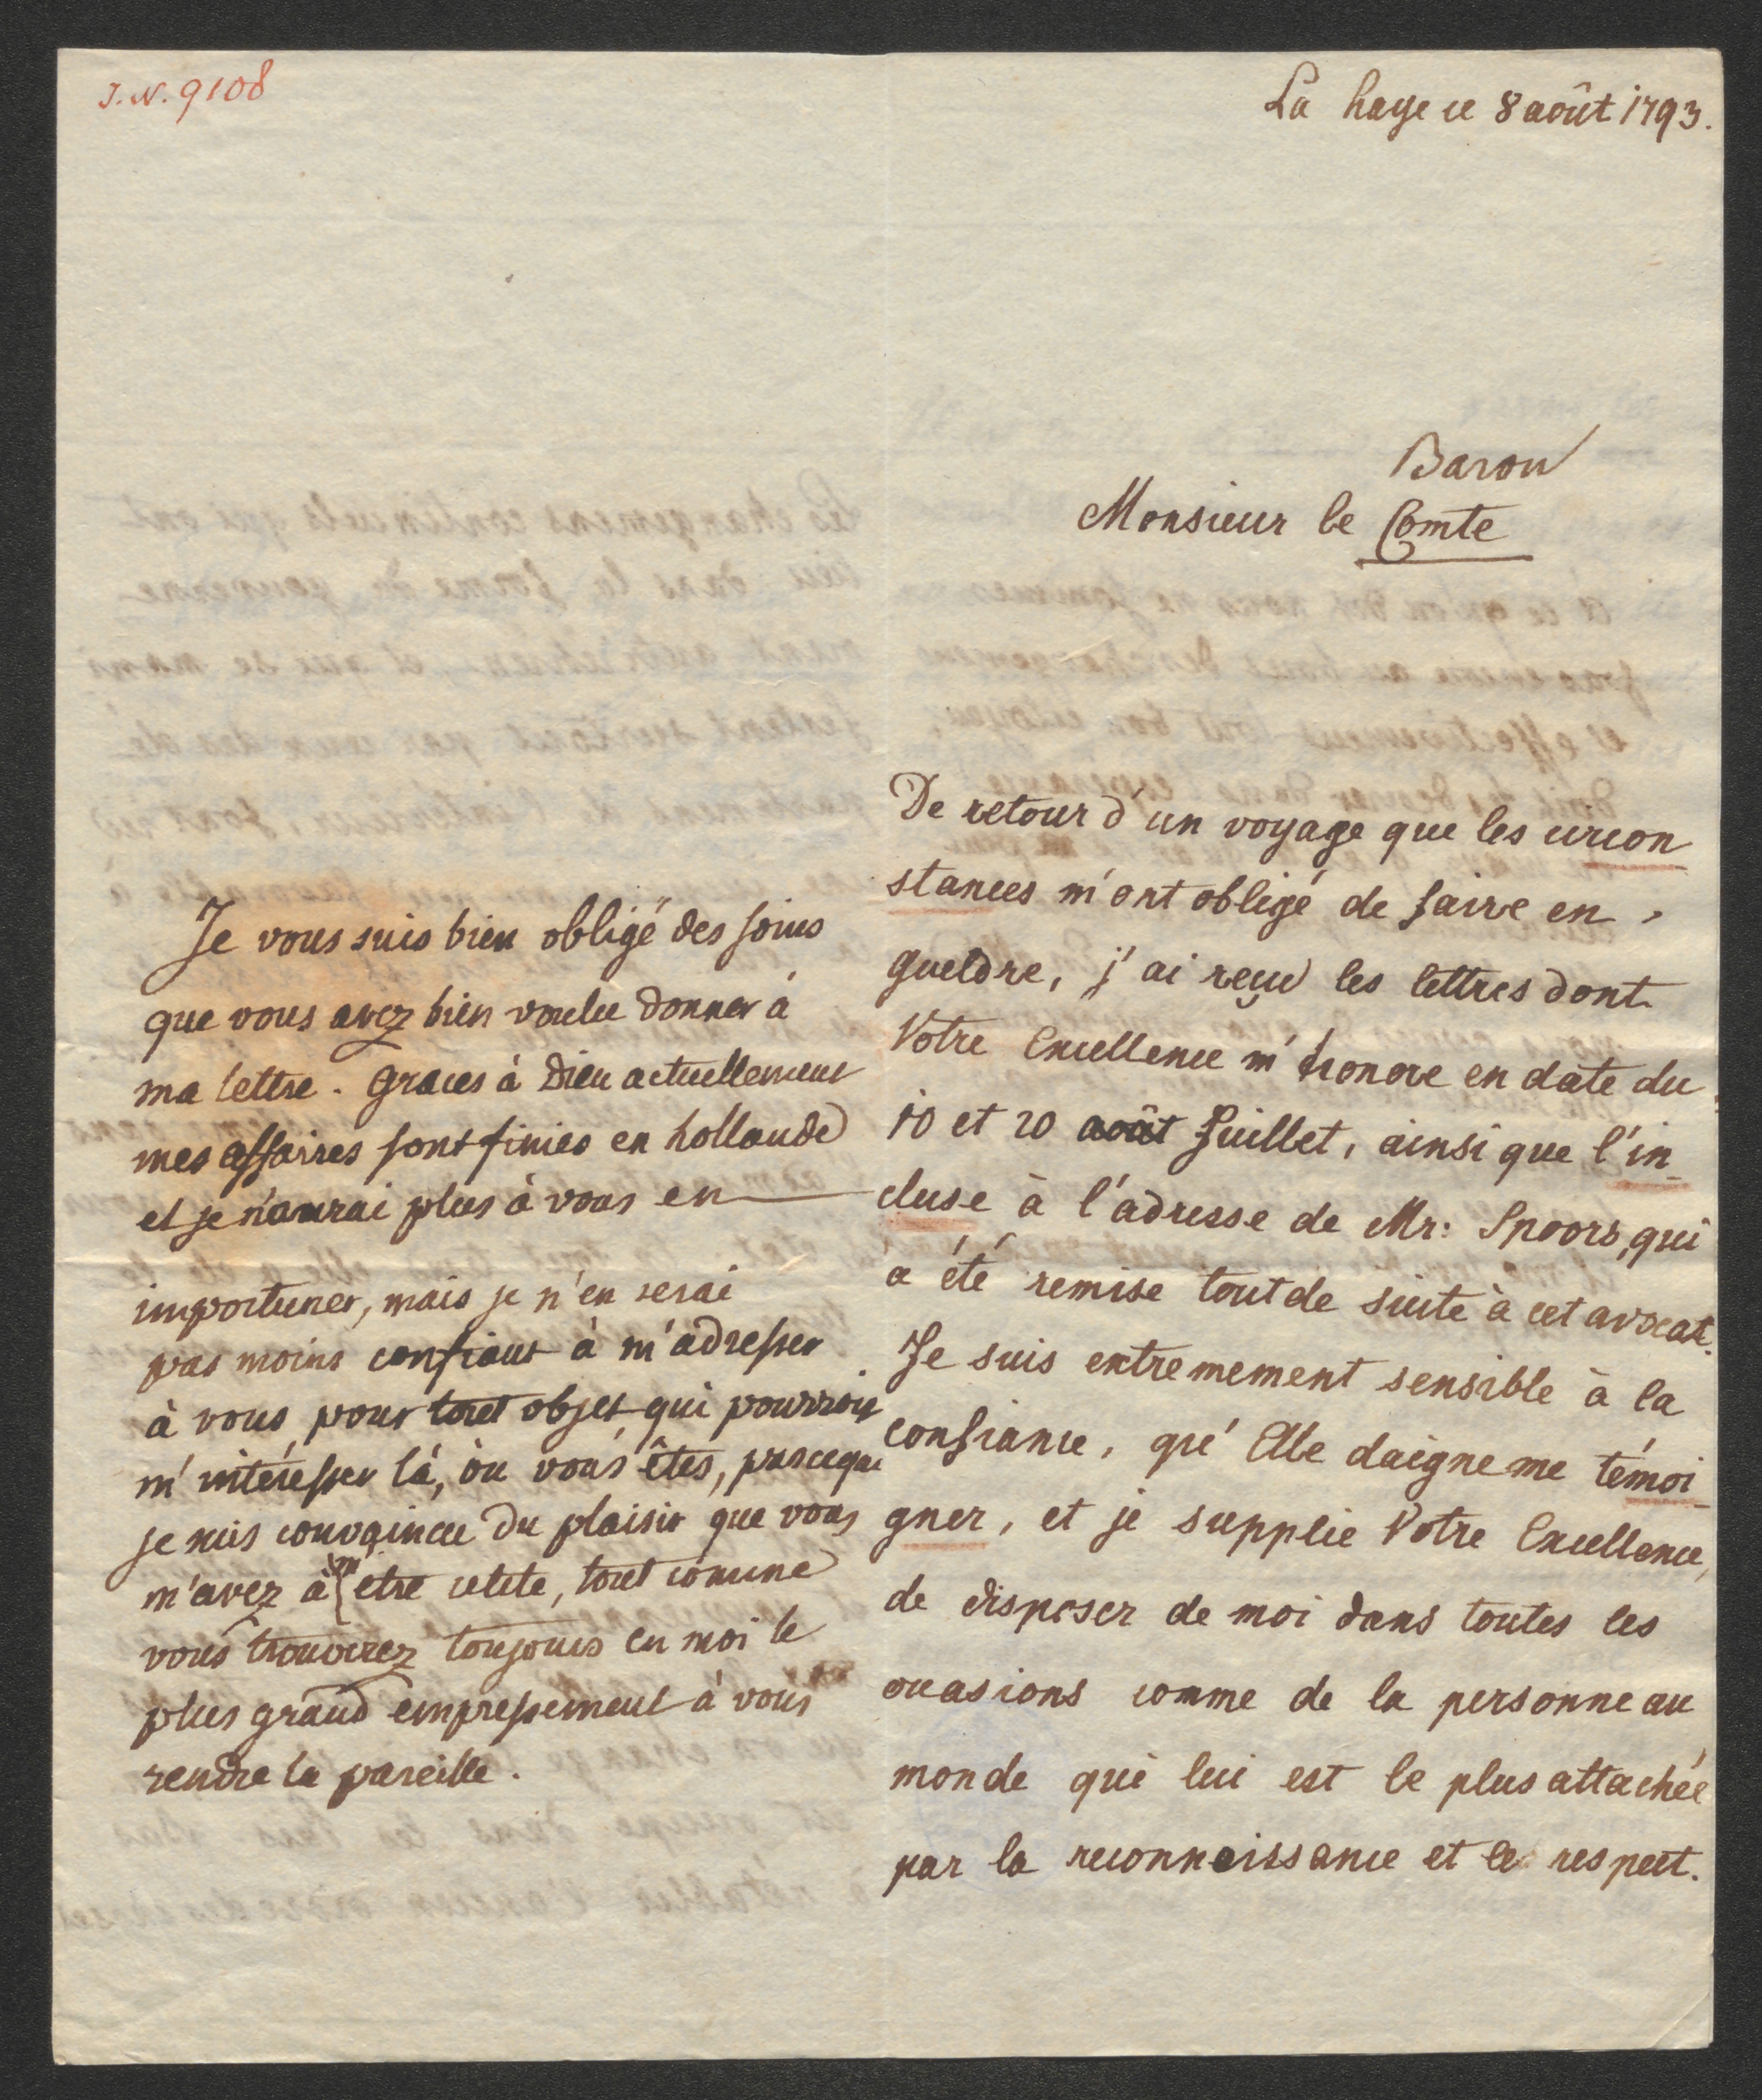 J. N. 9108
La haye ce 8 août 1793.
Baron
Monsieur le Comte
De retour d'un voyage que les circon
stances m'ont obligé de faire en
gueldre, j'ai reçu les lettres dont
Votre Excellence m'honore en date du
10 et 20 août Juillet, ainsi que l'in
cluse à l'adresse de Mr: Spoors, qui
a été remise tout de suite à cet avocat.
Je suis extremement sensible à la
confiance, qu'Elle daigne me témoi
gner, et je supplie Votre Excellence,
de disposer de moi dans toutes les
occasions comme de la personne au
monde qui lui est le plus attachée
par la reconnaissance et le respect.
Je vous suis bien obligé des soins
que vous avez bien voulu donner à
ma lettre. Graces à Dieu actuellement
mes affaires sont finies en hollande
et je n'aurai plus à vous en
importuner, mais je n'en serai
pas moins confiant à m'adresser
à vous pour tout objet qui pourroit
m'intéresser là, où vous êtes, parceque
je suis convaincu du plaisir que vous
m'avez à m' etre utile, tout comme
vous trouverez toujours en moi le
plus grand empressement à vous
rendre la pareille.